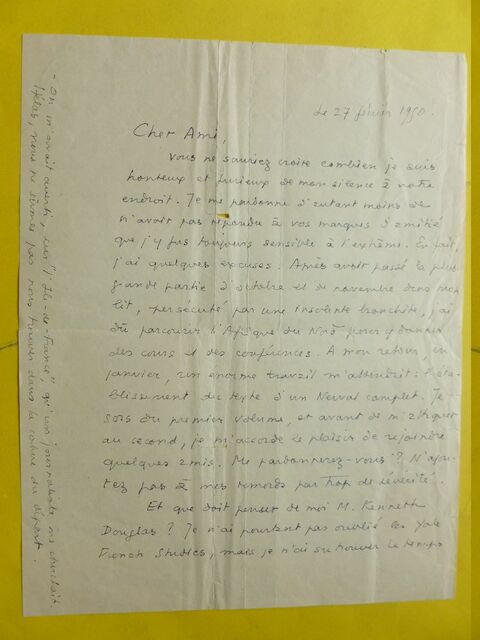 Le 27 février 1950.
Cher Ami,
Vous ne sauriez croire combien je suis
honteux et furieux de mon silence à votre
endroit. Je me pardonne d'autant moins de
n'avoir pas répondu à vos marques d'amitié
que j'y fus toujours sensible à l'extrême. En fait,
j'ai quelques excuses. Après avoir passé la plus
grande partie d'octobre et de novembre dans mon
lit, persécuté par une insolente bronchite, j'ai
dû parcourir l'Afrique du Nord pour y donner
des cours et des conférences. A mon retour, en
janvier, un énorme travail m'attendait : l'éta-
blissement du texte d'un Nerval complet. Je
sors du premier volume, et avant de m'attaquer
au second, je m'accorde le plaisir de rejoindre
quelques amis. Me pardonnerez-vous ? N'ajou-
tez pas à mes remords par trop de sévérité.
Et que doit penser de moi M. Kenneth
Douglas ? Je n'ai pourtant pas oublié les Yale
French Studies, mais je n'ai su trouver le temps
- On m'avait averti, sur "l'Ile-de-France", qu'un journaliste me cherchait.
Hélas, nous ne sûmes pas nous trouver dans la cohue du départ.